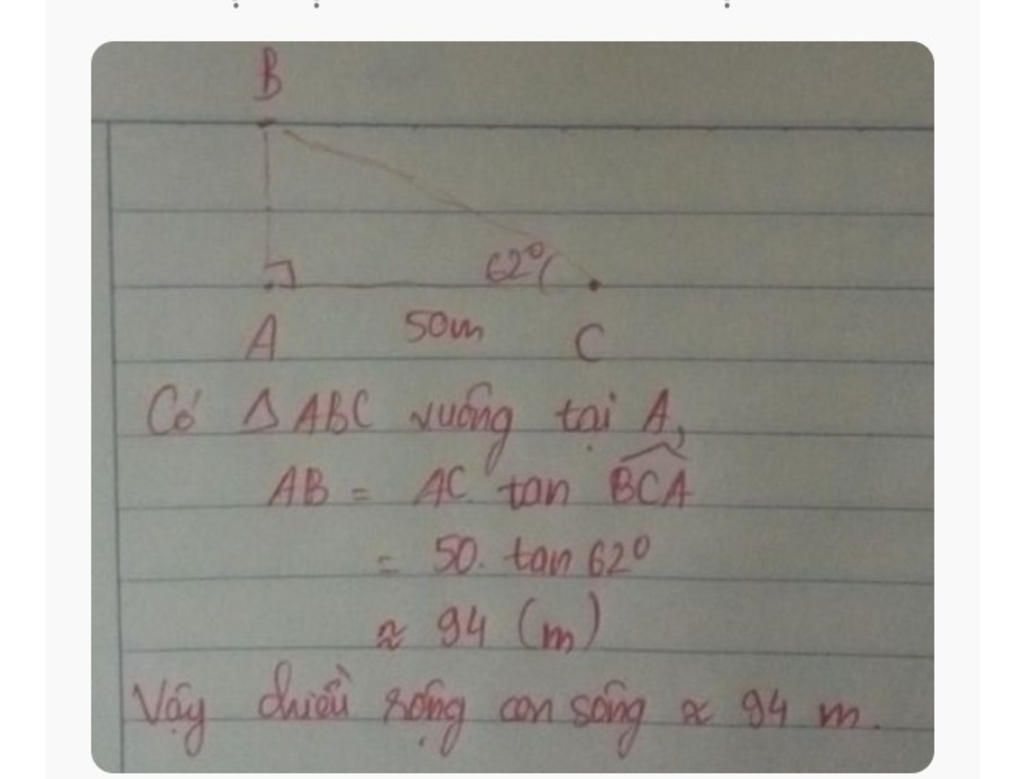 B
62°
A 50m C
Có Δ ABC vuông tại A,
AB = AC. tan BCA
= 50. tan 62°
≈ 94 (m)
Vậy chiều rộng con sông ≈ 94 m.